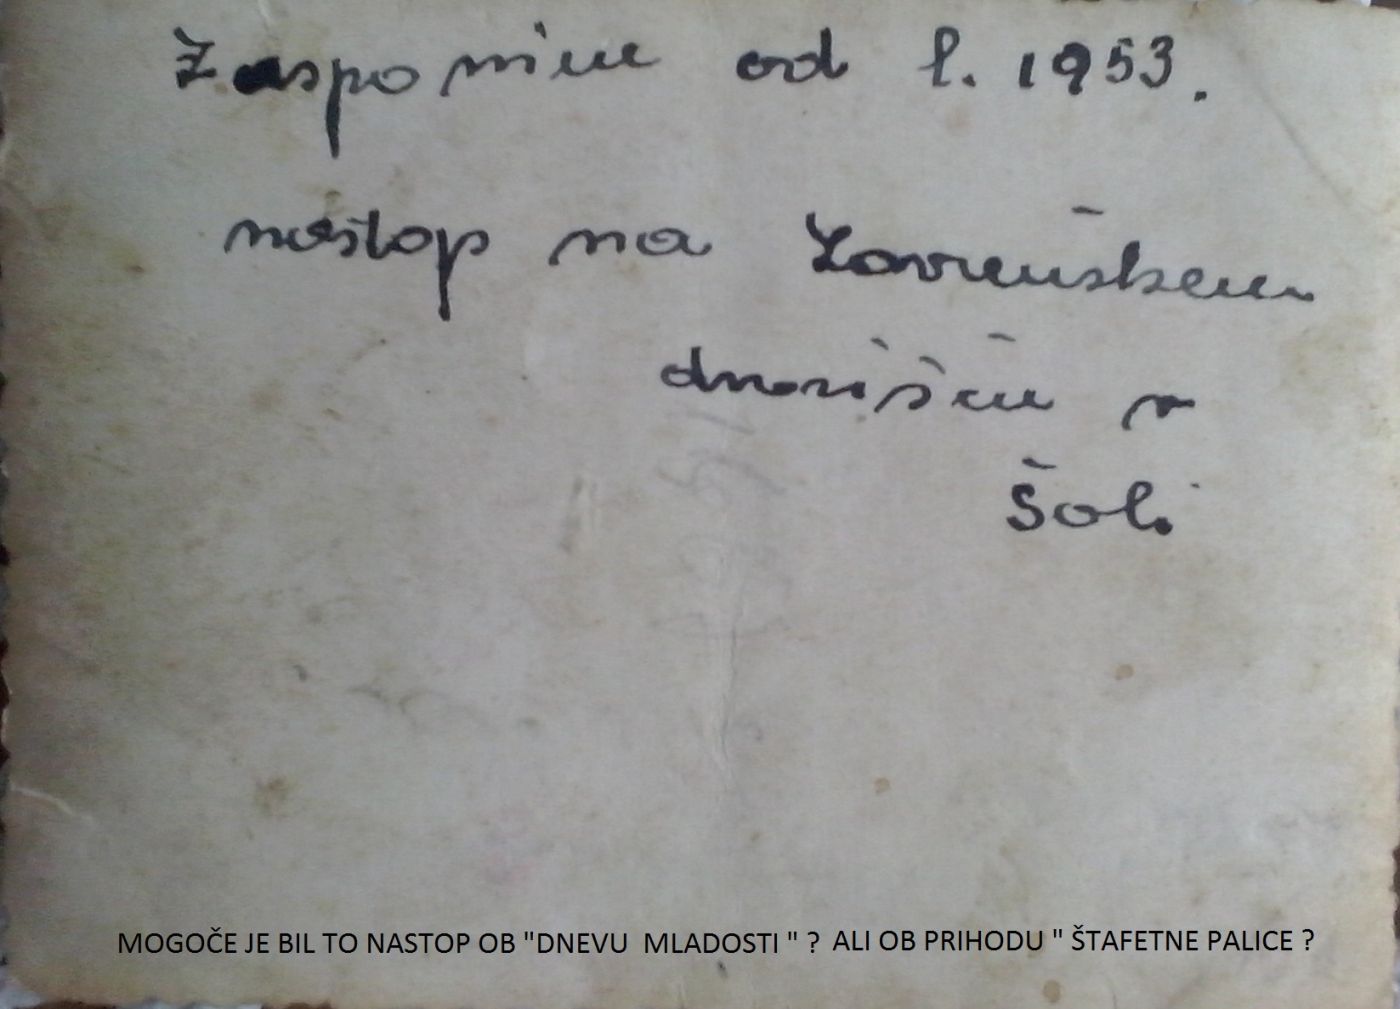 Zaspomin od l. 1953.
nastop na Zavrušskem
dvorišču v
Šoli
MOGOČE JE BIL TO NASTOP OB "DNEVU MLADOSTI " ? ALI OB PRIHODU " ŠTAFETNE PALICE ?